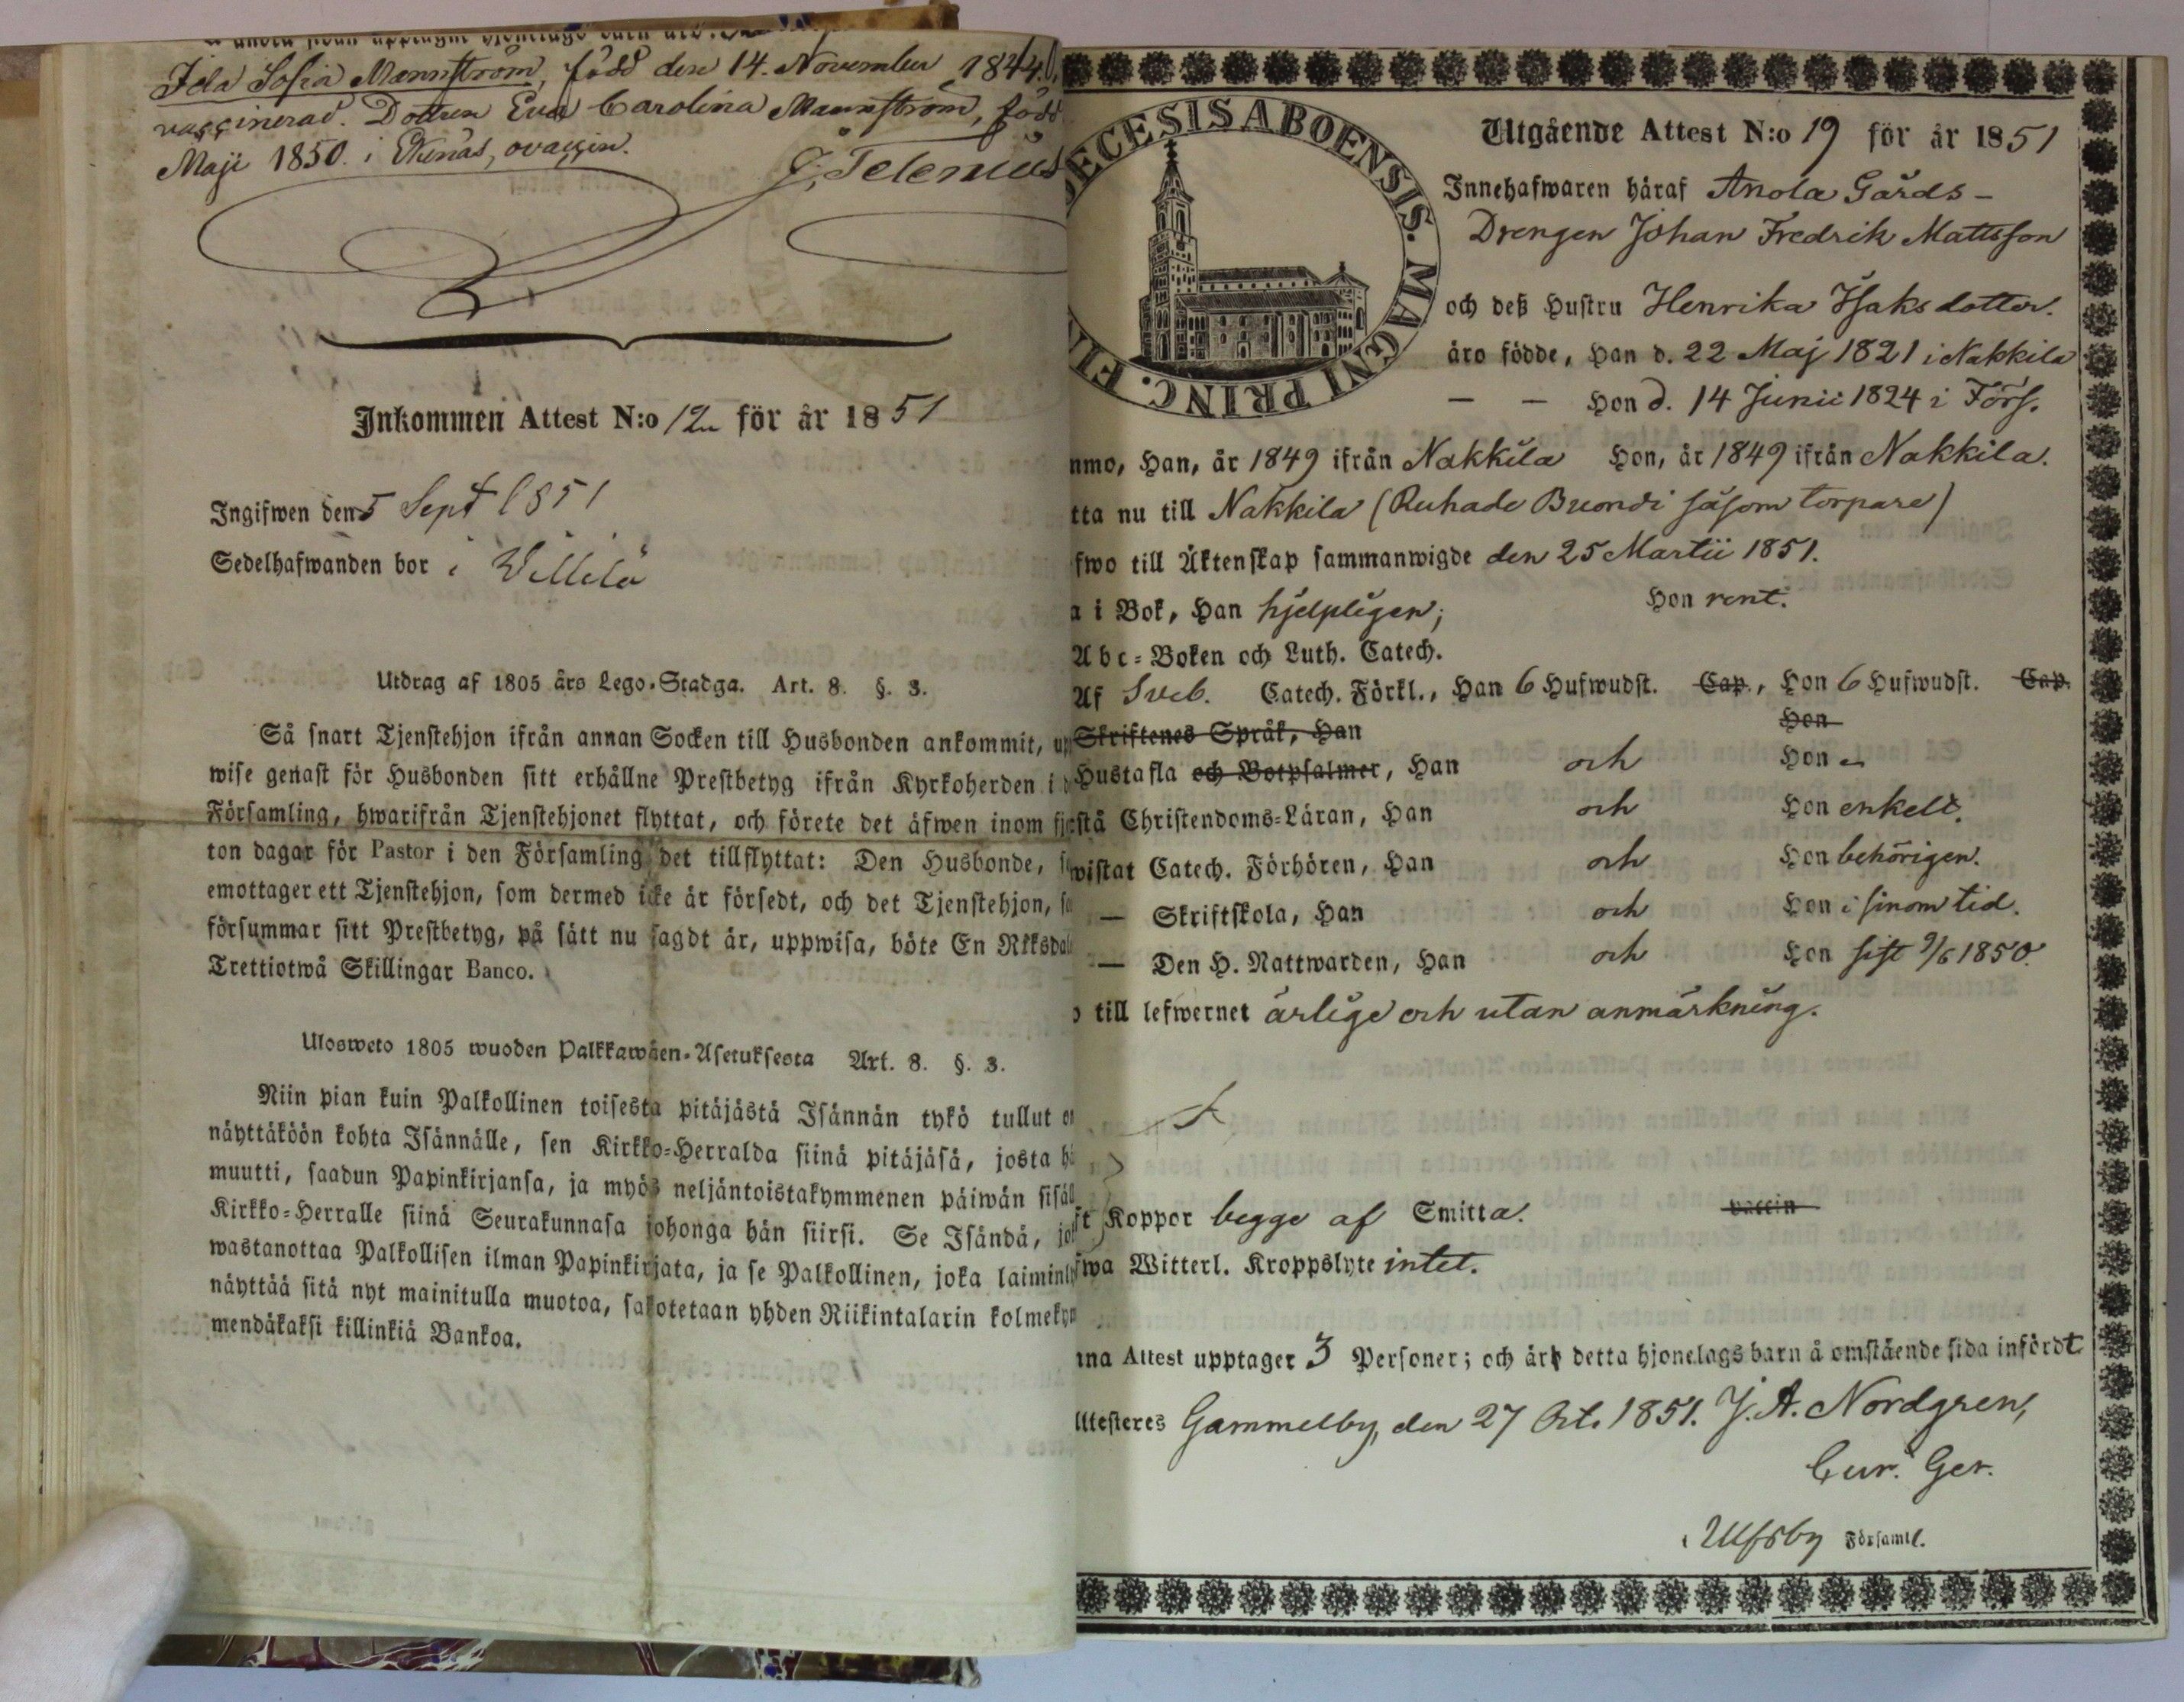 Ida Sofia Mannström, född den 14. November 1844,
vaccinerad. Dottren Eva Carolina Mannström, född
Maji 1850. i Ekenäs, ovaccin.
G. Telenius
Inkommen Attest N:o 12 för år 1851
Ingifwen den 5 Sept 1851
Sedelhafwanden bor i Willilä
Utdrag af 1805 års Lego-Stadga. Art. 8. §. 3.
Så snart Tjenstehjon ifrån annan Socken till Husbonden ankommit, up
wise genast för Husbonden sitt erhållne Prestbetyg ifrån Kyrkoherden i d
Församling, hwarifrån Tjenstehjonet flyttat, och förete det äfwen inom fjo
ton dagar för Pastor i den Församling det tillflyttat: Den Husbonde, s
emottager ett Tjenstehjon, som dermed icke är försedt, och det Tjenstehjon, so
försummar sitt Prestbetyg, på sätt nu sagdt är, uppwisa, böte En Rıksdal
Trettiotwå Skillingar Banco.
Ulosweto 1805 wuoden Palkkawäen-Asetuksesta Art. 8. §. 3.
Niin pian kuin Palkollinen toisesta pitäjästä Isännän tykö tullut on
näyttäköön kohta Isännälle, sen Kirkko-Herralda siinä pitäjäsä, josta hä
muutti, saadun Papinkirjansa, ja myös neljäntoistakymmenen päiwän sisäl
Kirkko-Herralle siinä Seurakunnasa johonga hän siirsi. Se Isändä, jo
wastanottaa Palkollisen ilman Papinkirjata, ja se Palkollinen, joka laiminly
näyttää sitä nyt mainitulla muotoa, sakotetaan yhden Riikintalarin kolmekym
mendäkaksi killinkiä Bankoa.
ECESIS ABOENSIS. MAGNI PRINC. FI
Utgående Attest N:o 19 för år 1851
Innehafwaren häraf Anola Gårds-
Drengen Johan Fredrik Mattsson
och deß Hustru Henrika Isaksdotter.
äro födde, Han d. 22 Maj 1821 i Nakkila
— — Hon d. 14 Junii 1824 i Förs.
mmo, Han, år 1849 ifrån Nakkila Hon, år 1849 ifrån Nakkila.
tta nu till Nakkila (Ruhade Buondi såsom torpare)
fwo till Äktenskap sammanwigde den 25 Martii 1851.
a i Bok, Han hjelpligen; Hon rent.
Abc-Boken och Luth. Catech.
Af Sveb. Catech. Förkl., Han 6 Hufwudst. Cap., Hon 6 Hufwudst. Cap.
Skriftenes Språk, Han Hon
Hustafla och Botpsalmer, Han och Hon
stå Christendoms-Läran, Han och Hon enkelt.
wistat Catech. Förhören, Han och Hon behörigen.
— Skriftskola, Han och Hon i sinom tid.
— Den H. Nattwarden, Han och Hon sist 9/6 1850.
o till lefwernet ärlige och utan anmärkning.
ft Koppor begge af Smitta. vaccin
fwa Witterl. Kroppslyte intet.
nna Attest upptager 3 Personer; och är detta hjonelags barn å omstående sida infördt
ttesteres Gammelby, den 27 Oct. 1851. J. A. Nordgren,
Cur. Ger.
i Ulfsby Församl.